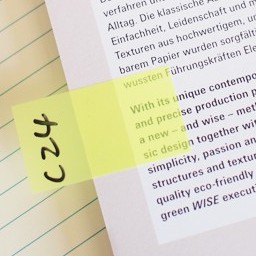 verfahren und
Alltag. Die klassische A
Einfachheit, Leidenschaft und r
Texturen aus hochwertigem, u
barem Papier wurden sorgfält
wussten Führungskräften Ele
With its unique contempo
and precise production p
a new – and wise – met
sic design together wit
simplicity, passion an
structures and textur
quality eco-friendly
green WISE execut
C24